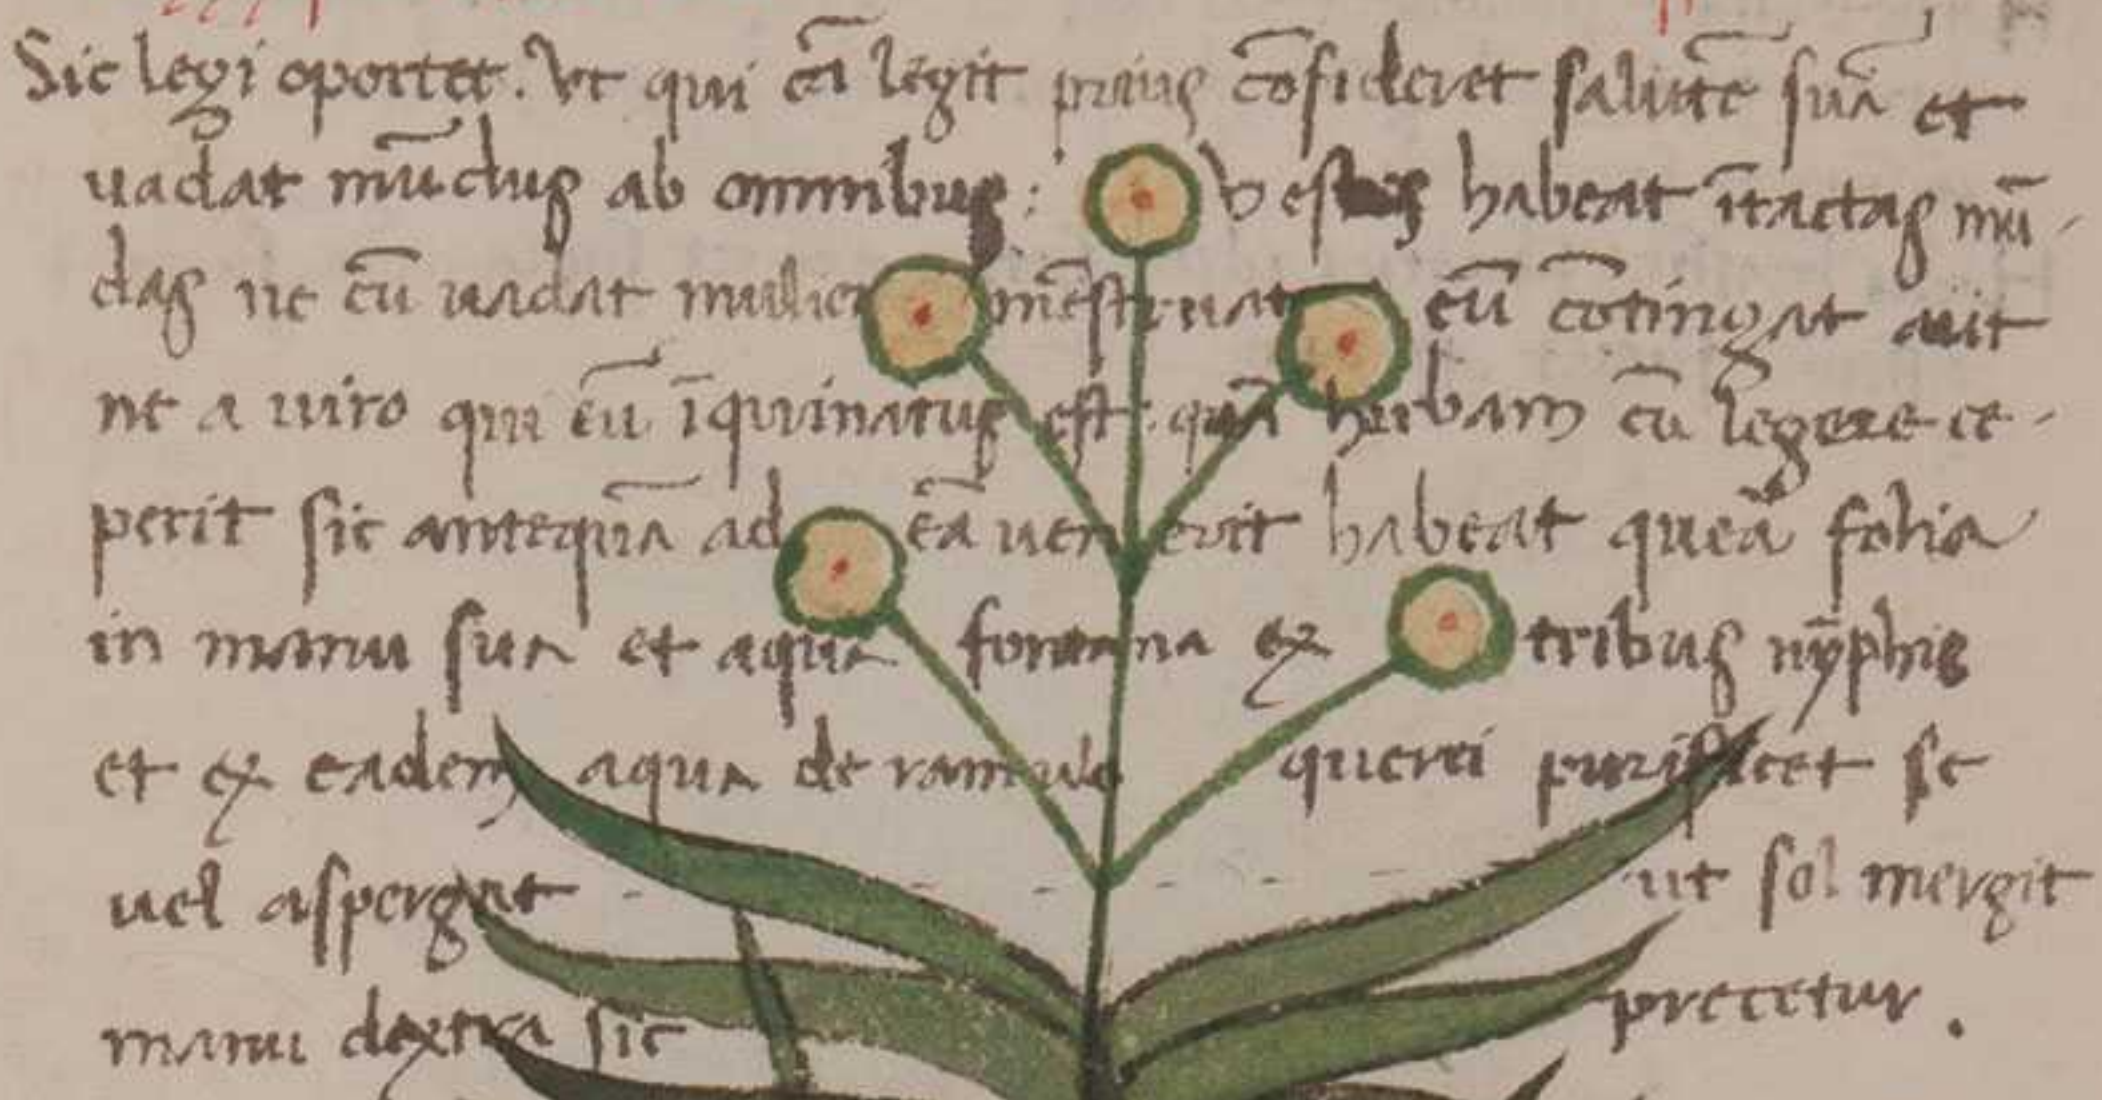 Sic legi oportet. Vt qui eā legit prius cōsideret salutē suā et
uadat mūdus ab omnibus: vestes habeat ītactas mū
das ne cū uadat mulier mēstruat eū cōtingat aut
ne a uiro qui eū īquinatus est: quā herbam cū legere ce
perit sic antequā ad eā uenerit habeat queā folia
in manu sua et aqua fontana ex tribus nȳphis
et ex eadem aqua de ramulo querci purificet se
uel aspergat ut sol mergit
manu dextra sic precetur.